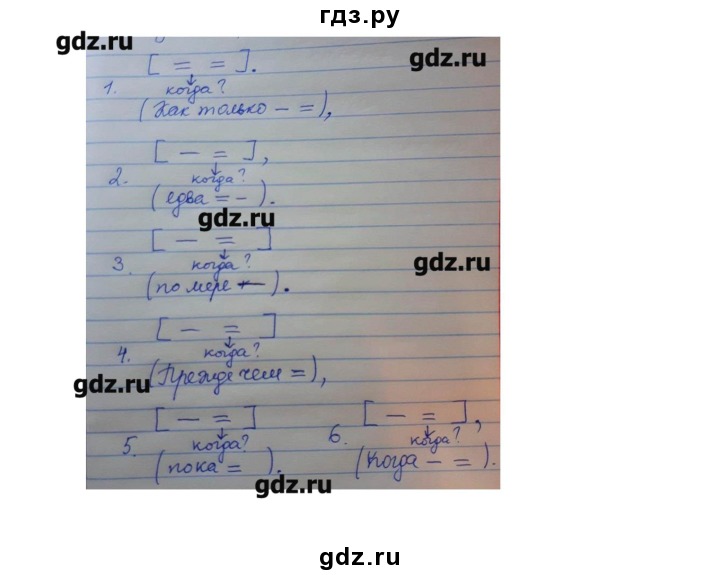 гдз.ру
gdz.ru
gdz.ru
[ = = ].
1. когда?
(Как только – =),
[ – = ],
2. когда?
(едва = – ).
gdz.ru
[ – = ]
3. когда?
(по мере – ).
gdz.ru
[ – = ]
4. когда?
(Прежде чем = ),
gdz.ru
[ – = ]
5. когда?
(пока = ).
[ – = ],
6. когда?
(Когда – = ).
gdz.ru
gdz.ru